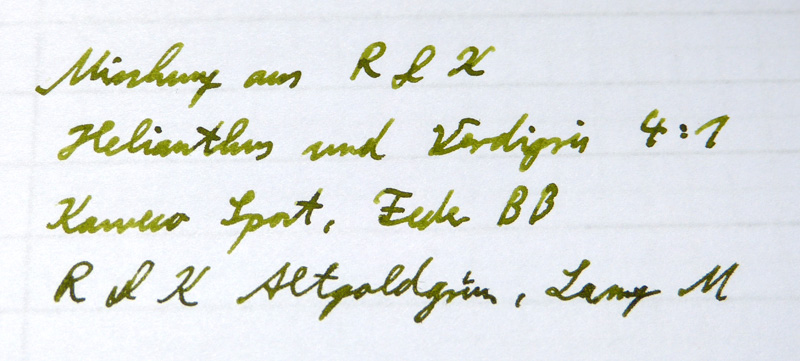 Mischung aus R & K
Helianthus und Verdigris 4:1
Kaweco Sport, Feder BB
R & K Altgoldgrün, Lamy M